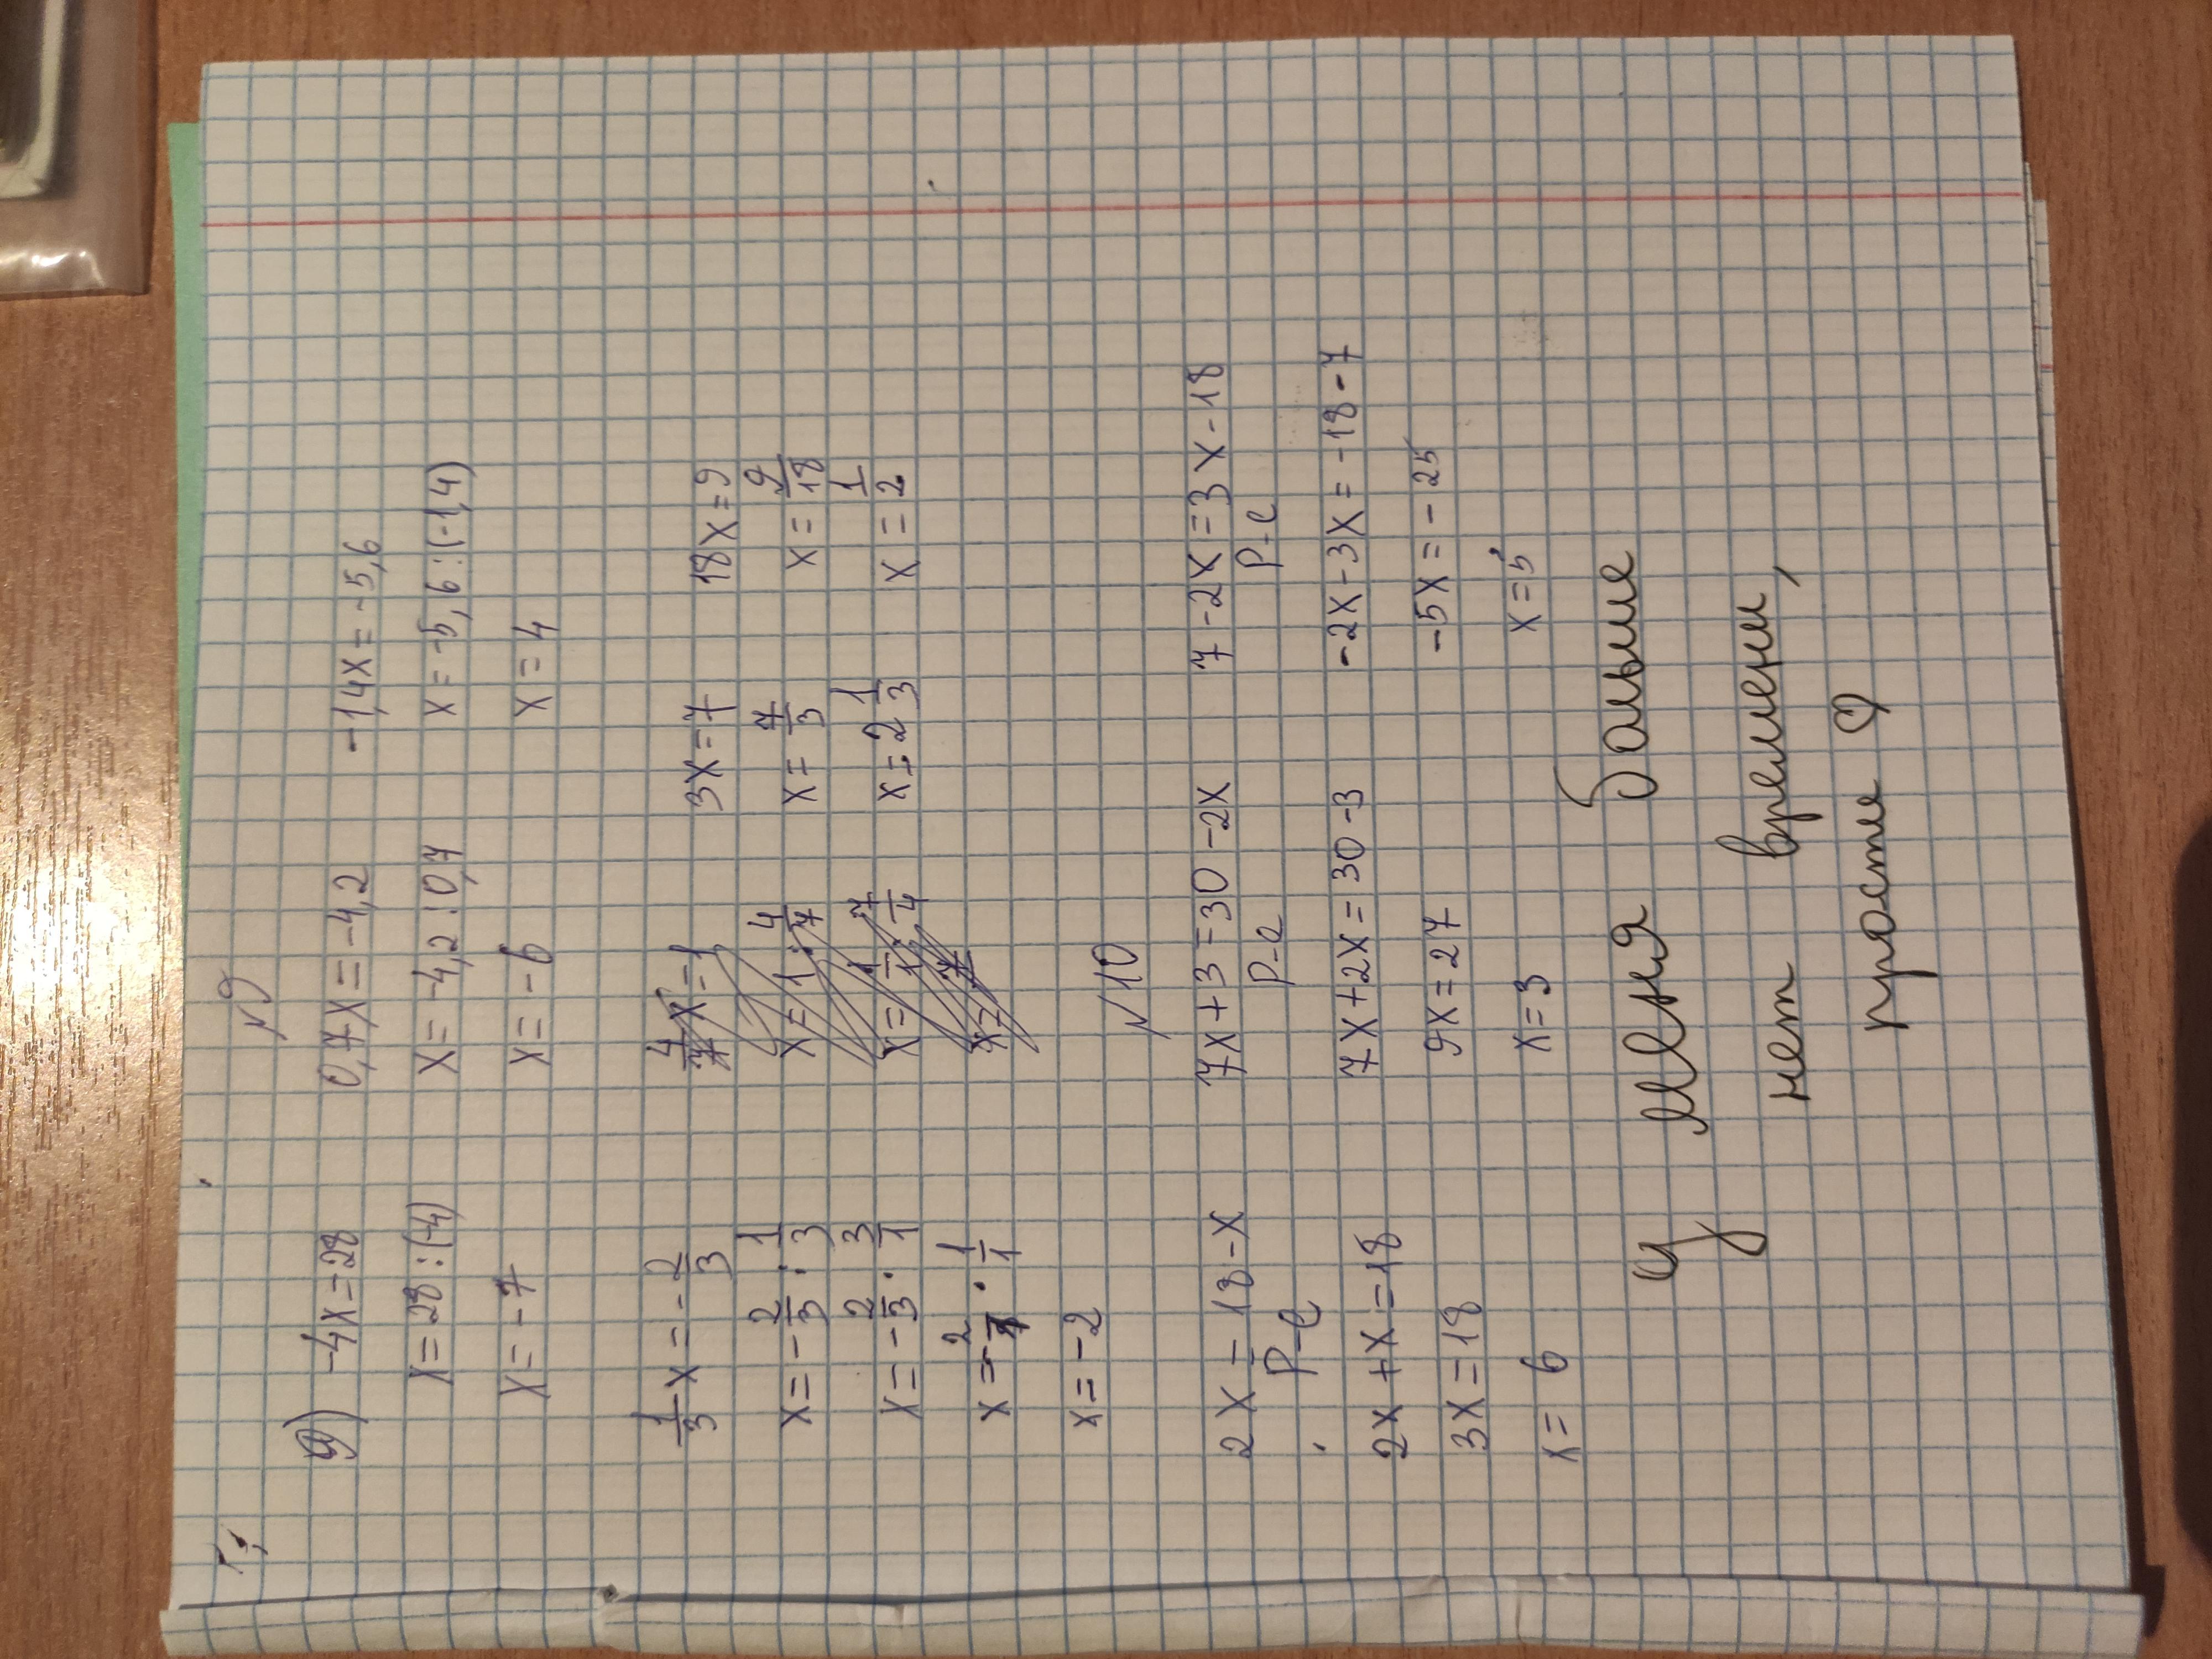 №9
9) -4x=28 0,7x=-4,2 -1,4x=-5,6
x=28:(-4) x=-4,2:0,7 x=-5,6:(-1,4)
x=-7 x=-6 x=4
1/3x=-2/3 4/7x=1 3x=7 18x=9
x=-2/3:1/3 x=1:4/7 x=7/3 x=9/18
x=-2/3·3/1 x=1/1·7/4 x=2 1/3 x=1/2
x=-2/1·1/1
x=-2
№10
2x=18-x 7x+3=30-2x 7-2x=3x-18
р-е р-е р-е
2x+x=18 7x+2x=30-3 -2x-3x=-18-7
3x=18 9x=27 -5x=-25
x=6 x=3 x=5
У меня больше
нет времени,
прости ♡